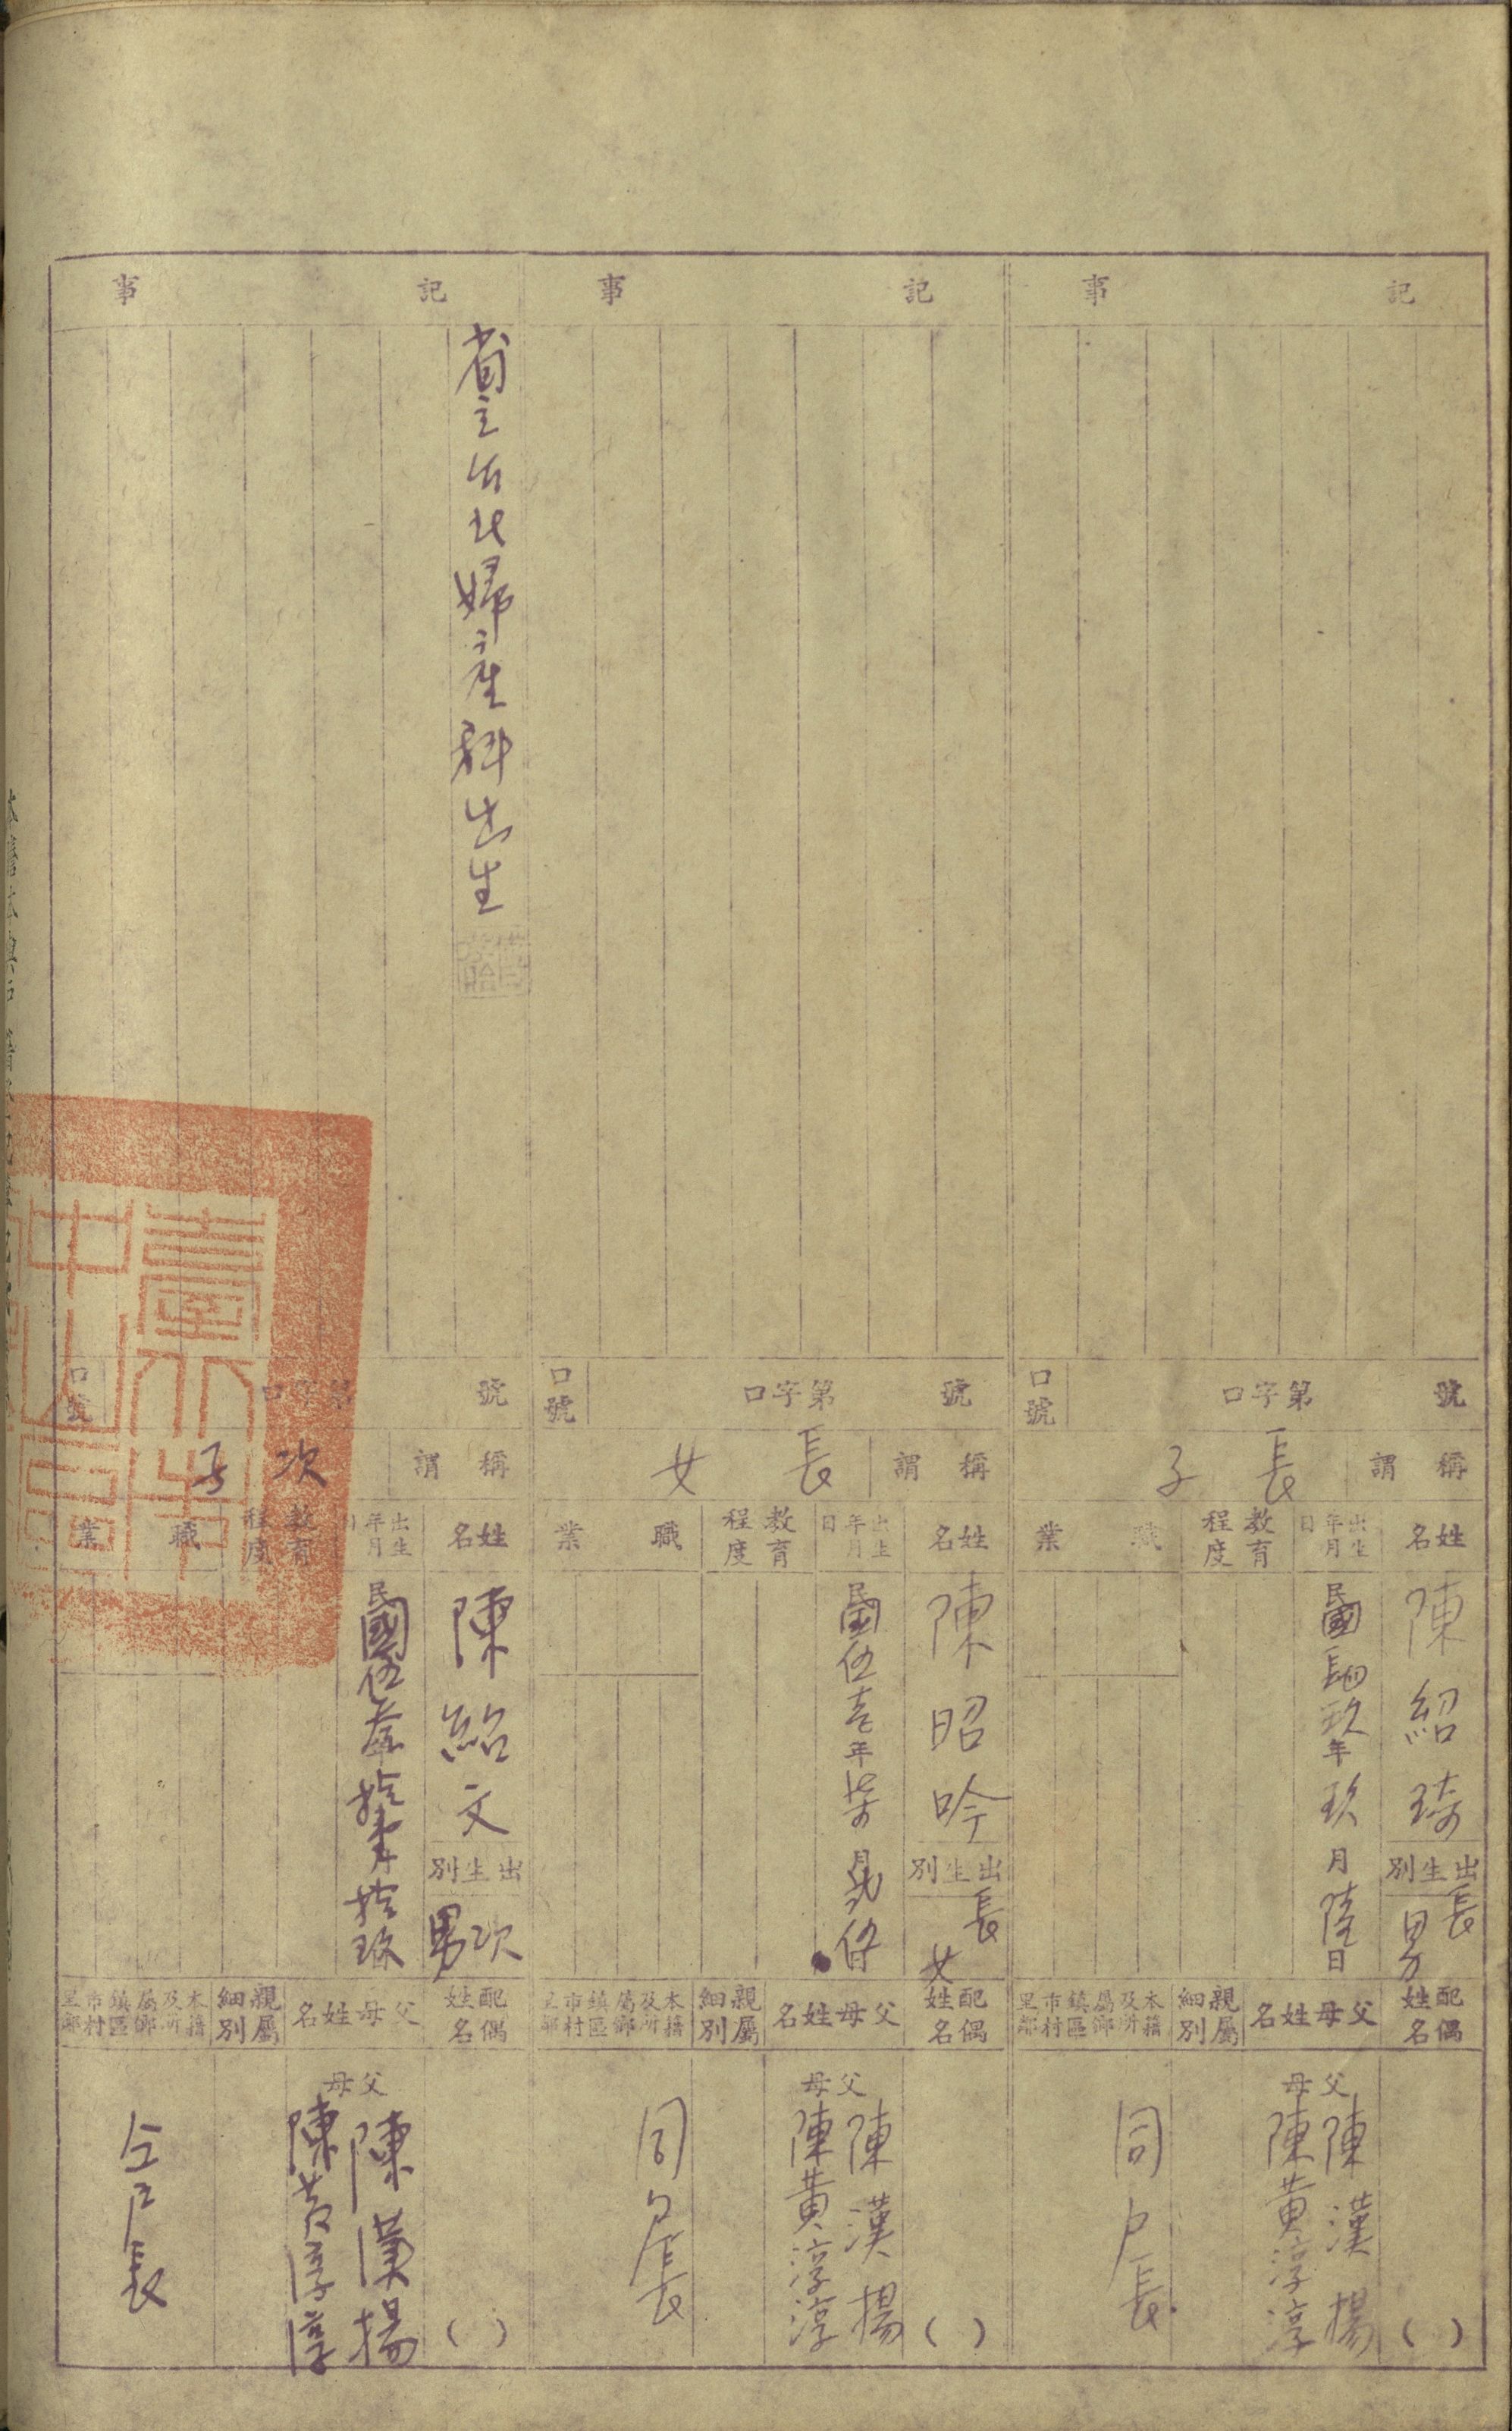 記事
號
第字口
口號
稱謂
長子
姓名
陳紹琦
出生別
長男
出生年月日
民國肆玖年玖月陸日
教育程度
職業
配偶姓名
( )
父母姓名
父
陳漢揚
母
陳黃淳淳
親屬細別
本籍及所屬鄉鎮區市村里鄰
同戶長
記事
號
第字口
口號
稱謂
長女
姓名
陳昭吟
出生別
長女
出生年月日
民國伍壹年柒月
教育程度
職業
配偶姓名
( )
父母姓名
父
陳漢揚
母
陳黃淳淳
親屬細別
本籍及所屬鄉鎮區市村里鄰
同戶長
記事
省立台北婦產科出生
號
第字口
口號
稱謂
次子
姓名
陳紹文
出生別
次男
出生年月日
民國伍叁年拾月拾玖
教育程度
職業
配偶姓名
( )
父母姓名
父
陳漢揚
母
陳黃淳淳
親屬細別
本籍及所屬鄉鎮區市村里鄰
仝戶長